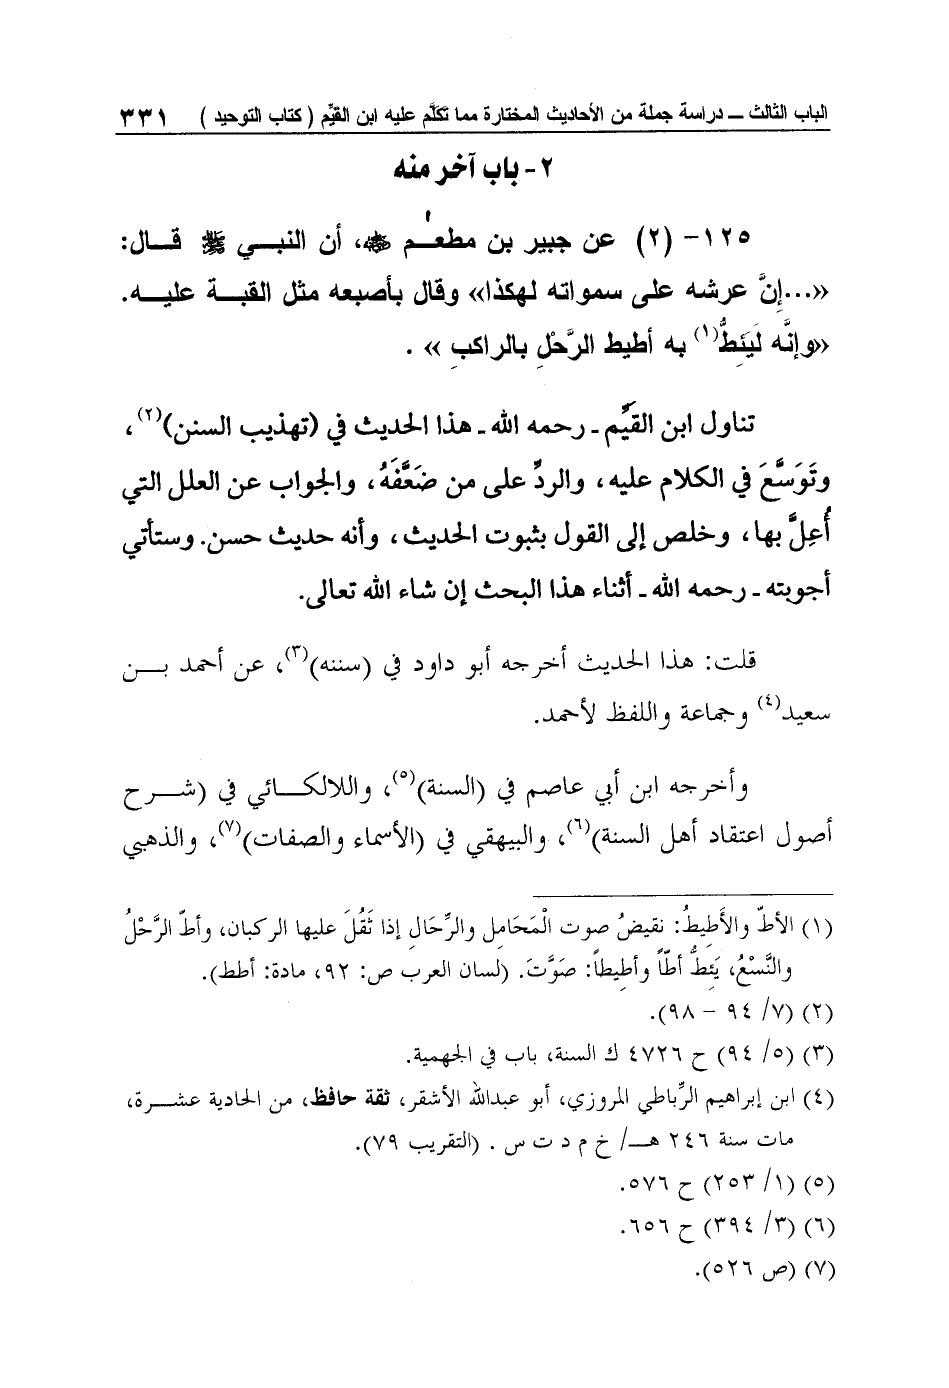 الباب الثالث ــ دراسة جملة من الأحاديث المختارة مما تكلَّم عليه ابن القيِّم ( كتاب التوحيد ) ٣٣١
٢ - باب آخر منه
١٢٥- (٢) عن جبير بن مطعم ﵁، أن النبي ﷺ قال:
«...إنَّ عرشه على سمواته لهكذا» وقال بأصبعه مثل القبة عليه.
«وإنَّه لَيَئِطُّ(١) به أطيط الرَّحْلِ بالراكبِ » .
تناول ابن القيِّم ـ رحمه الله ـ هذا الحديث في (تهذيب السنن)(٢)،
وتَوَسَّعَ في الكلام عليه، والردِّ على من ضَعَّفَهُ، والجواب عن العلل التي
أُعِلَّ بها، وخلص إلى القول بثبوت الحديث، وأنه حديث حسن. وستأتي
أجوبته ـ رحمه الله ـ أثناء هذا البحث إن شاء الله تعالى.
قلت: هذا الحديث أخرجه أبو داود في (سننه)(٣)، عن أحمد بن
سعيد(٤) وجماعة واللفظ لأحمد.
وأخرجه ابن أبي عاصم في (السنة)(٥)، واللالكائي في (شرح
أصول اعتقاد أهل السنة)(٦)، والبيهقي في (الأسماء والصفات)(٧)، والذهبي
(١) الأطّ والأَطِيطُ: نقيضُ صوت الْمَحَامِل والرِّحَالِ إذا ثَقُلَ عليها الركبان، وأطّ الرَّحْلُ
والنَّسْعُ، يَئِطُّ أطّاً وأطِيطاً: صَوَّتَ. (لسان العرب ص: ٩٢، مادة: أطط).
(٢) (٧/ ٩٤ – ٩٨).
(٣) (٥/ ٩٤) ح ٤٧٢٦ ك السنة، باب في الجهمية.
(٤) ابن إبراهيم الرِّباطي المروزي، أبو عبدالله الأشقر، ثقة حافظ، من الحادية عشرة،
مات سنة ٢٤٦ هـ/ خ م د ت س . (التقريب ٧٩).
(٥) (١/ ٢٥٣) ح ٥٧٦.
(٦) (٣/ ٣٩٤) ح ٦٥٦.
(٧) (ص ٥٢٦).